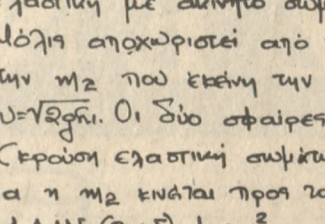 λαστική με ακίνητο σωμ
Μόλις αποχωριστεί από
την m₂ που εκείνη την
υ=√2gh₁. Οι δύο σφαίρες
(κρούση ελαστική σωμάτω
α η m₂ κινείται προς το